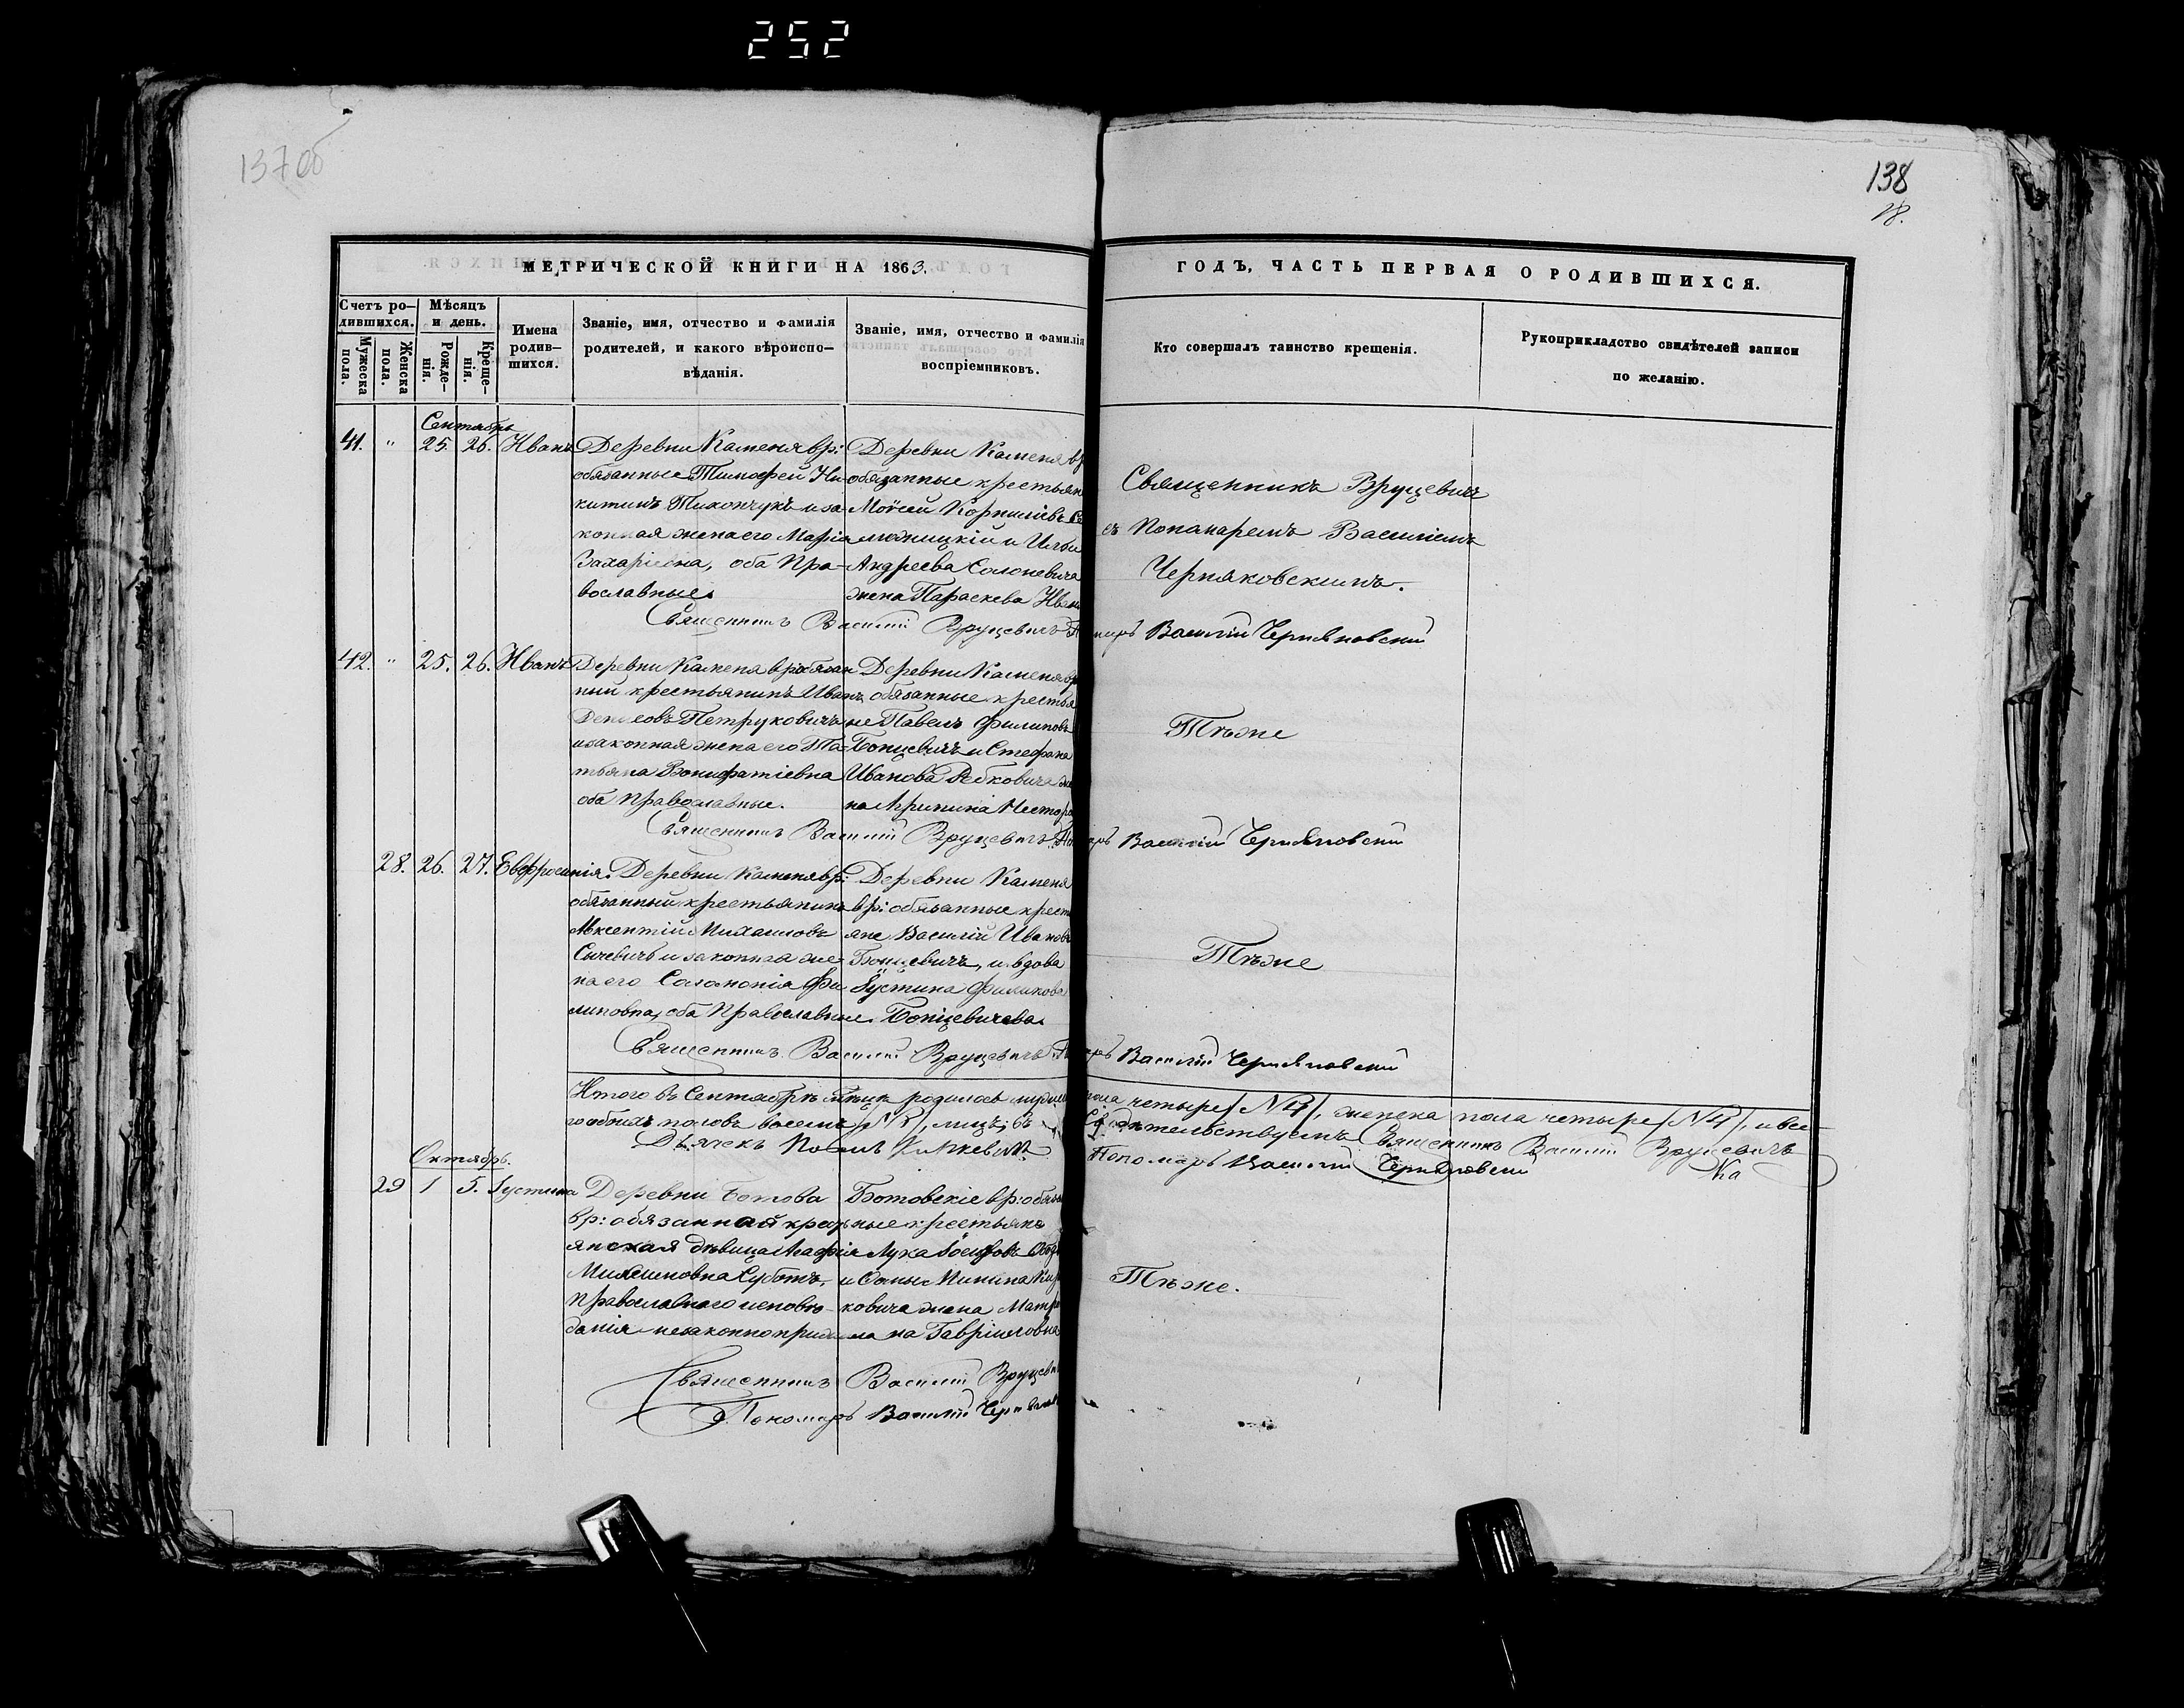 252
137 об
138
28.
МЕТРИЧЕСКОЙ КНИГИ НА 1863.
ГОДЪ, ЧАСТЬ ПЕРВАЯ О РОДИВШИХСЯ.
Счетъ ро-
дившихся.
Мужеска пола.
Женска пола.
Мѣсяцъ
и день.
Рожде-
нія.
Креще-
нія.
Имена
родив-
шихся.
Званіе, имя, отчество и фамилія
родителей, и какого вѣроиспо-
вѣданія.
Званіе, имя, отчество и фамилія
воспріемниковъ.
Кто совершалъ таинство крещенія.
Рукоприкладство свидѣтелей записи
по желанію.
Сентябрь
41. " 25. 26. Иванъ
Деревни Каменя вр:
обязанные Тимофей Ни-
китинъ Тихончукъ и за-
конная жена его Марія
Захаріевна, оба Пра-
вославные.
Деревни Каменя вр
обязанные крестьян
Моѵсей Корниліевъ
и Ильи
Андреева Солоневича
жена Параскева Иван
Священникъ Врущевичъ
съ Пономаремъ Василіемъ
Черняковскимъ.
Священникъ Василій Врущевичъ
Василій Черняковскій
42. " 25. 26. Иванъ
Деревни Каменя вр: обязан
ный крестьянинъ Иванъ
Денисовъ Петруковичъ
и законная жена его Та-
тьяна Вонифатіевна
оба Православные.
Деревни Каменя вр
обязанные крестья
не Павелъ Филиповъ
Бонцевичъ и Стефана
Иванова Рабковича же
на Агрипина Нестор
Тѣже
Священникъ Василій Врущевичъ
Василій Черняковскій
28. 26. 27. Евфросинія.
Деревни Каменя вр:
обязанный крестьянинъ
Авксентій Михаиловъ
Сычевичъ и законная же-
на его Саломонія Фи
липовна, оба Православные.
Деревни Каменя
вр: обязанные крест
яне Василій Ивановъ
Бонцевичъ, и вдова
Іустина Филипова
Бонцевичева.
Тѣже
Священникъ Василій Врущевичъ
Василій Черняковскій
Итого въ Сентябрѣ мѣсяцѣ родилось мужеск пола четыре /№ 4/, женска пола четыре /№ 4/, и все-
го обоихъ половъ восемь /№ 8/, лицъ, въ Свидѣтельствуемъ Священникъ Василій Врущевичъ
Дьячекъ Пономарь Василій Черняковскій
Октябрь.
29 1 5. Іустина
Деревни Ботова
вр: обязанной кресть
янская дѣвица Агафія
Михеиновна Суботъ,
Православнаго исповѣ-
данія незаконноприжила
Ботовскіе вр: обяза
нные крестьянъ
Лука Іосифовъ
и Фомы Минина
ковича жена Матр
на Гавріиловна
Тѣже.
Священникъ Василій Врущеви
Пономарь Василій Черняк